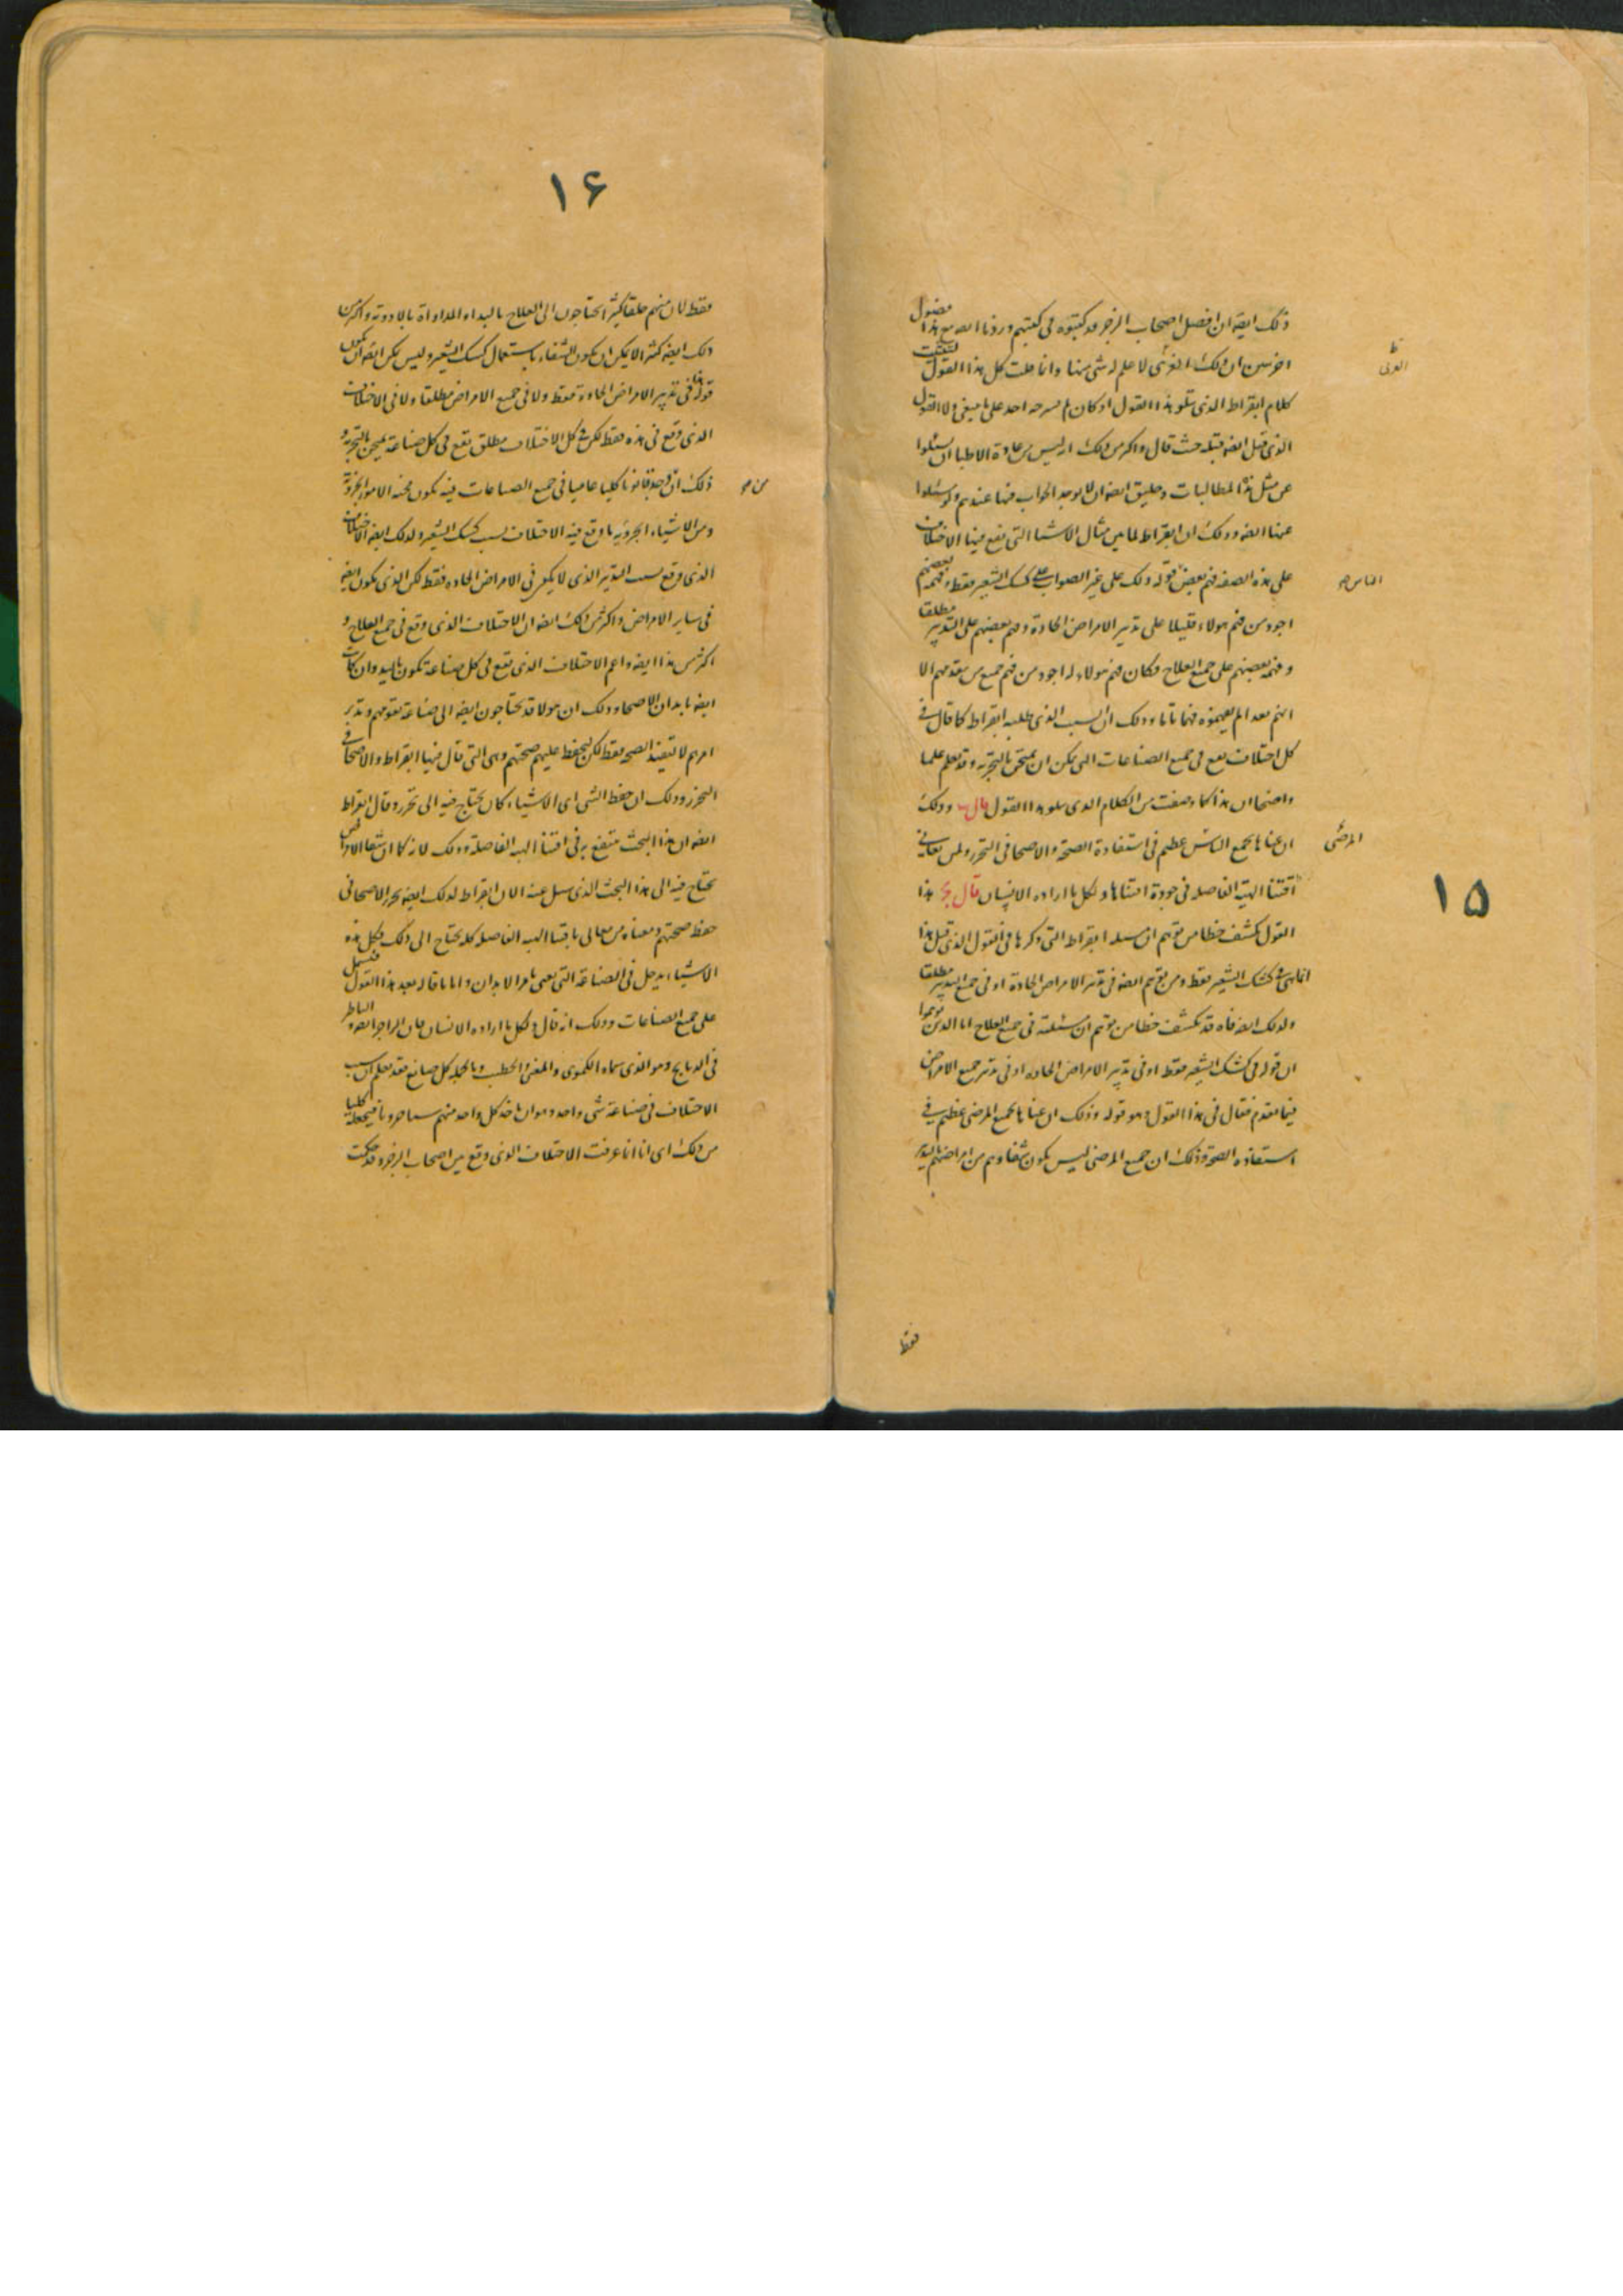 ذلك ايضه ان افضل اصحاب الزجر قد كتبوه فى كتبهم وزدنا ايضه مع هذا فصول
اخر ان ذلك لا علم له شى منها وانا قلت كل هذا القول
كلام ابقراط الذى يتلو هذا القول اذ كان لم يشرحه احد على ما ينبغى ولا القول
الذى قبل ايضه قبله حيث قال واكثر من ذلك انه ليس من عادة الاطبا ان يسئلوا
عن مثل هذا المطالبات وخليق ايضه ان لا يوجد الجواب فيها عندهم ولو سئلوا
عنها ايضه وذلك ان ابقراط لما بين مثال الاشيا التى يقع فيها الاختلاف
على هذه الصفه فهم بعض قوله ذلك على غير الصواب على كشك الشعير فقط وفهمه بعضهم
الناس
اجود من فهم هولاء قليلا على تدبير الامراض الحادة وفهم بعضهم على التدبير مطلقا
وفهمه بعضهم على جميع العلاج وكان فهم هولاء له اجود من فهم جميع من تقدمهم الا
انهم بعد لم يفهموه فهما تاما وذلك ان السبب الذى طلبه ابقراط كما قال فى
كل اختلاف يقع فى جميع الصناعات التى يمكن ان يمتحن بالتجربه وقد تعلم علما
واضحا ان هذا كما وصفت من الكلام الذى يتلو هذا القول قال وذلك
ان عناها بجميع الناس عظيم فى استفادة الصحة والاصحا فى التحرز ولمن يعانى
المرضى
اقتنا الهيئة الفاضله فى جودة اقتناها ولكل ما اراده الانسان قال ج هذا
القول يكشف خطا من توهم ان مسئله ابقراط التى ذكرها فى القول الذى قبل هذا
انما هى فى كشك الشعير فقط ومن توهم ايضه فى تدبير الامراض الحادة او فى جميع التدبير مطلقا
ولذلك ايضه فانه قد يكشف خطا من توهم ان مسئلته فى جميع العلاج اما الذين توهموا
ان قوله فى كشك الشعير فقط او فى تدبير الامراض الحاده او فى تدبير جميع الامراض
فيما تقدم فقال فى هذا القول وهو قوله وذلك ان عناها بجميع المرضى عظيم فى
استفاده الصحة وذلك ان جميع المرضى ليس يكون شفاوهم من امراضهم بالتدبير
فقط
١٥
١۶
فقط لان منهم خلقا كثيرا يحتاجون الى العلاج باليد او المداواة بالادويه واكثر من
ذلك ايضه كثيرا لا يمكن ان يكون الشفاء باستعمال كشك الشعير وليس يمكن ايضه ان يكون
قوله هذا فى تدبير الامراض الحادة فقط ولا فى جميع الامراض مطلقا ولا فى الاختلاف
الذى وقع فى هذه فقط لكن فى كل الاختلاف مطلق يقع فى كل صناعة يمتحن بالتجربه و
ذلك ان قانونا كليا عاميا فى جميع الصناعات فيه يكون محنه الامور الجزويه
ومن الاشياء الجزويه ما وقع فيه الاختلاف بسبب كشك الشعير ولذلك ايضه الاختلاف
الذى وقع بسبب التدبير الذى لا يكون فى الامراض الحاده فقط لكن الذى يكون ايضه
فى ساير الامراض واكثر من ذلك ايضه ان الاختلاف الذى وقع فى جميع العلاج و
اكثر من هذا ايضه واعم الاختلاف الذى يقع فى كل صناعة تكون باليد وان كانت
ايضه بابدان الاصحا وذلك ان هولا قد يحتاجون ايضه الى صناعة تقومهم وتدبر
امرهم لا لتفيد الصحه فقط لكن ليحفظ عليهم صحتهم وهى التى قال فيها ابقراط والاصحا فى
التحرز وذلك ان حفظ الشى اى الاشياء كان يحتاج فيه الى تحرز وقال ابقراط
ايضه ان هذا البحث منتفع به فى اقتنا الهيه الفاضلة وذلك لانه كما ان شفا الامراض
يحتاج فيه الى هذا البحث الذى سيل عنه الان ابقراط لذلك ايضه يحرز الاصحا فى
حفظ صحتهم ومعناه من معانى باقتنا الهيه الفاضله كله يحتاج الى ذلك فكل هذه
الاشياء يدخل فى الصناعة التى تعنى بامر الابدان واما ما قاله بعد هذا القول فيشتمل
على جميع الصناعات وذلك انه قال ولكل ما اراده الانسان فان الزاجر ايضه والناظر
فى الذبايح وهو الذى سماه الكموى والمغنى والخطيب وبالجمله كل صانع فقد يعلم ان سبب
الاختلاف فى صناعة شى واحد وهو ان ياخذ كل واحد منهم سببا جزويا فيجعله كليا
من ذلك اى انا انما عرفت الاختلاف الذى وقع بين اصحاب الزجر وقد حكيت